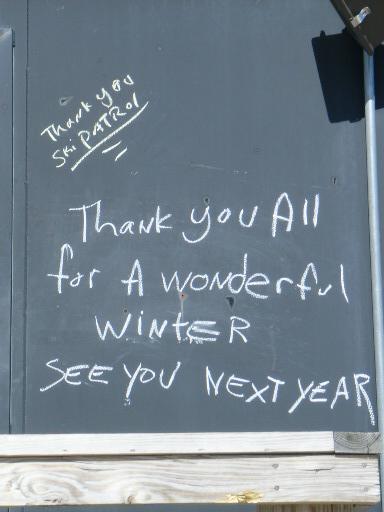 Thank you
Ski PATROL
Thank you All
for A wonderful
WINTER
SEE YOU NEXT YEAR